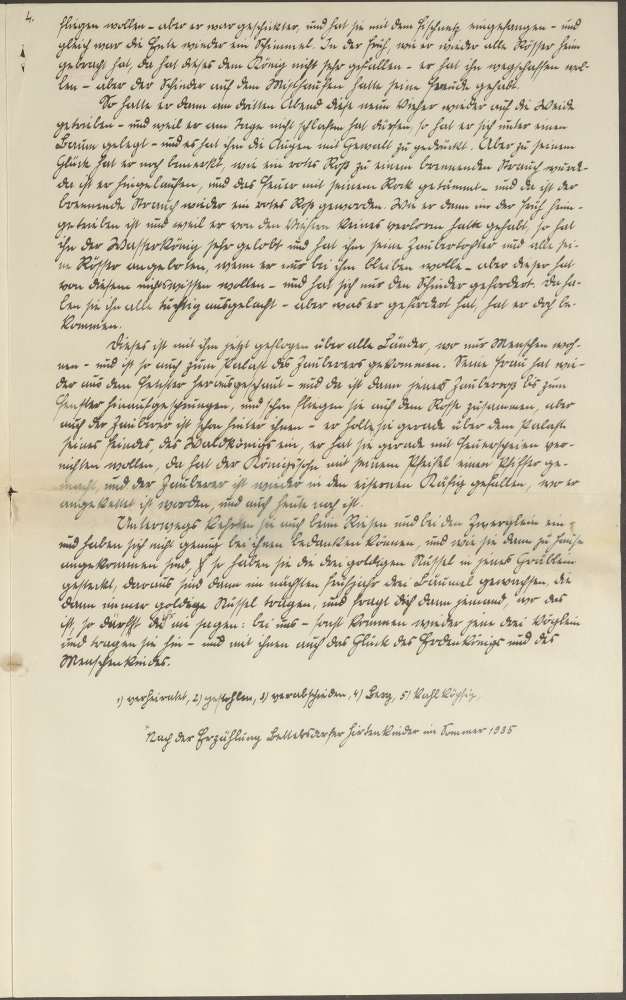 4.
fliegen wollen – aber er war geschickter, und hat sie mit dem Fischnetz eingefangen – und
gleich war die Ente wieder ein Schimmel. In der Früh, wie er wieder alle Rösser heim
gebracht hat, da hat dieses dem König nicht sehr gefallen – er hat ihn wegschaffen wol-
len – aber der Schinder auf dem Misthaufen hatte seine Freude gehabt.
So hatte er dann am dritten Abend diese neun Viecher wieder auf die Weide
getrieben – und weil er am Tage nicht schlafen hat dürfen, so hat er sich unter einen
Baum gelegt – und es hat ihm die Augen mit Gewalt zu gedrückt. Aber zu seinem
Glück hat er noch bemerkt, wie ein rotes Roß zu einem brennenden Strauch wurde –
da ist er hingelaufen, und das Feuer mit seinem Rock gedämmt – und da ist der
brennende Strauch wieder ein rotes Roß geworden. Wie er dann in der Früh heim-
getrieben ist und weil er von den Viechern keines verloren hatte gehabt, so hat
ihn der Wasserkönig sehr gelobt und hat ihm seine Zaubertochter und alle sei-
ne Rösser angeboten, wenn er nur bei ihm bleiben wolle – aber dieser hat
von diesem nichts wissen wollen – und hat sich nur den Schinder gefordert. Da ha-
ben sie ihn alle tüchtig ausgelacht – aber was er gefordert hat, hat er doch be-
kommen.
Dieses ist mit ihm jetzt geflogen über alle Länder, wo nur Menschen woh-
nen – und ist so auch zum Palast des Zauberers gekommen. Seine Frau hat wie-
der aus dem Fenster herausgeschaut – und da ist dann jenes Zauberroß bis zum
Fenster hinaufgesprungen, und schon fliegen sie auf dem Rosse zusammen, aber
auch der Zauberer ist schon hinter ihnen – er holte sie gerade über dem Palast
seines Feindes, des Waldkönigs ein, er hat sie gerade mit Feuerscheien ver-
nichten wollen, da hat der Königssohn mit seinem Pfeifel einen Pfiffer ge-
macht, und der Zauberer ist wieder in den eisernen Käfig gefallen, wo er
angekettet ist worden, und auch heute noch ist.
Unterwegs kehrten sie auch beim Riesen und bei den Zwerglein ein –
und haben sich nicht genug bei ihnen bedanken können, und wie sie dann zu Hause
angekommen sind, so haben sie die drei goldigen Nüssel in jenes Gräblein
gesteckt, daraus sind dann im nächsten Frühjahr drei Bäumel gewachsen, die
dann immer goldige Nüssel tragen, und fragt dich dann jemand, wo das
ist, so darfst du nie sagen: bei uns – sonst kommen wieder jene drei Vöglein
und tragen sie hin – und mit ihnen auch das Glück des Erdenkönigs und des
Menschenkindes.
1) verheiratet, 2) gestohlen, 3) verabschieden, 4) Berg, 5) Kahlköpfig,
Nach der Erzählung Bettelsdorfer Hirtenkinder im Sommer 1935